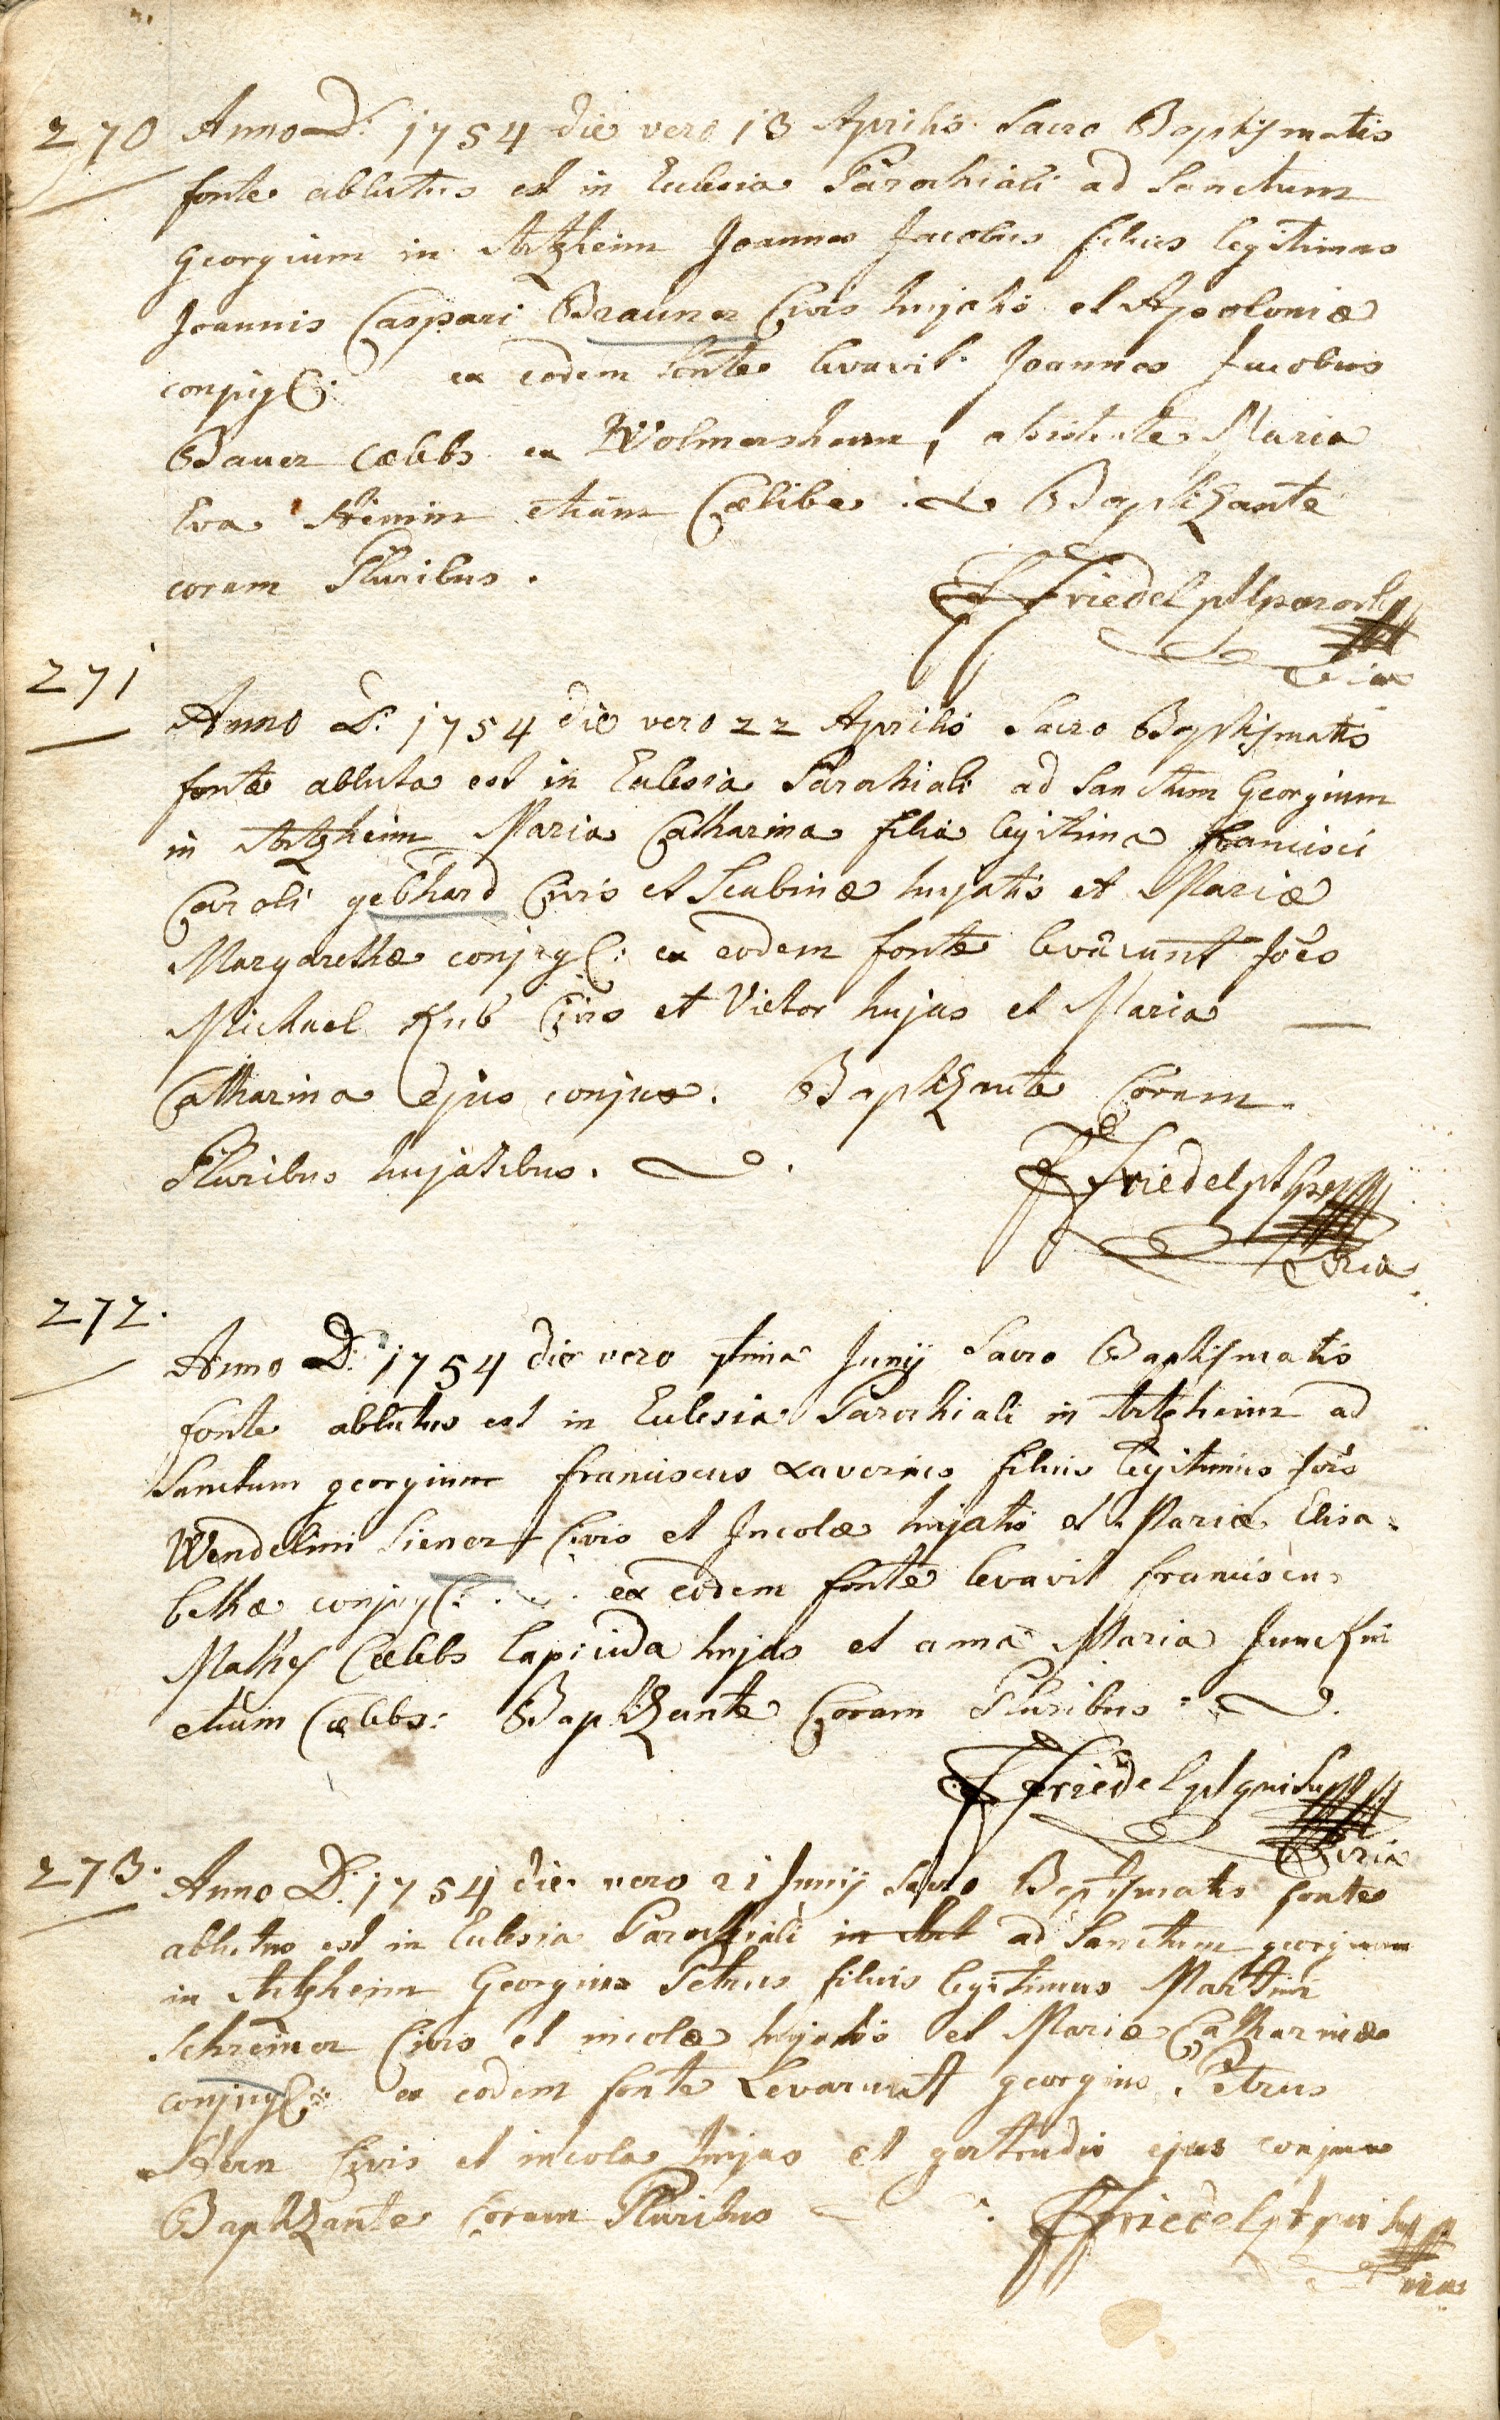 270 Anno D: 1754 die vero 13 Aprilis Sacro Baptismatis
fonte ablutus est in Eclesia Parochiali ad Sanctum
Georgium in Artzheim Joannes Jacobus filius legitimus
Joannis Caspari Brauner Civis hujatis et Apoloniæ
conjug: ex eodem fonte levavit Joannes Jacobus
Bauer cælebs ex Wolmersheim, assistente Maria
Eva etiam Cælibe. Baptizante
coram Pluribus.
Friedel pl
271
Anno D: 1754 die vero 22 Aprilis Sacro Baptismatis
fonte abluta est in Eclesia Parochiali ad Sanctum Georgium
in Artzheim Maria Catharina filia legitima francisci
Caroli gebhard Civis et Scabinæ hujatis et Mariæ
Margarethæ conjug: ex eodem fonte levarunt Joes
Michael Kub Civis et Vietor hujas et Maria
Catharina ejus conjux. Baptizante Coram
Pluribus hujatibus.
Friedel pl
272.
Anno D: 1754 die vero 7tima Junij Sacro Baptismatis
fonte ablutus est in Eclesia Parochiali in Artzheim ad
Sanctum georgium franciscus Xaverius filius legitimus Jois
Wendelini Siener Civis et Incolæ hujatis et Mariæ Elisa=
bethæ conjug: ex eodem fonte levavit franciscus
Mathes Cælebs lapicida hujas et Maria
etiam Cælebs: Baptizante Coram Pluribus:
Friedel pl
273. Anno D: 1754 die vero 21 Junij Sacro Baptismatis fonte
ablutus est in Eclesia Parochiali in Art ad Sanctum georgium
in Artzheim Georgius Petrus filius legitimus Martini
Schreiner Civis et incolæ hujatis et Mariæ Catharinæ
conjug: ex eodem fonte Levarunt georgius Petrus
Hern Civis et incola hujas et gertrudis ejus conjux
Baptizante coram Pluribus
Friedel pl